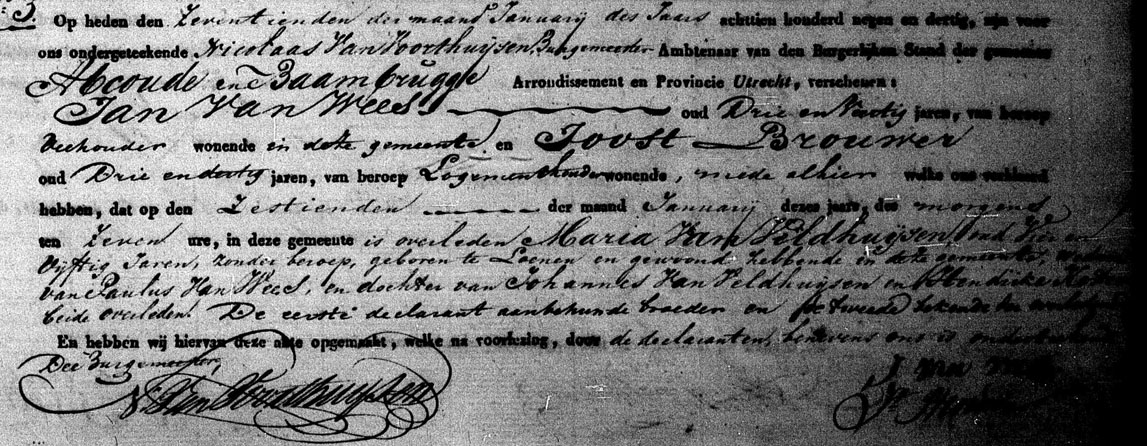 3.
Op heden den Zeventienden der maand Januarij des Jaars achttien honderd negen en dertig, zijn voor
ons ondergeteekende Nicolaas Van Voorthuijsen Burgemeester Ambtenaar van den Burgerlijken Stand der gemeente
Abcoude en Baambrugge Arrondissement en Provincie Utrecht, verschenen:
Jan Van Wees oud Drie en Veertig jaren, van beroep
Veehouder wonende in deze gemeente, en Joost Brouwer
oud Drie en dertig jaren, van beroep Logementhouder wonende, mede alhier welke ons verklaard
hebben, dat op den Zestienden der maand Januarij dezes jaars, des morgens
ten Zeven ure, in deze gemeente is overleden Maria Van Veldhuijsen, oud
Vijftig Jaren, zonder beroep, geboren te Loenen en gewoond hebbende in deze gemeente,
van Paulus Van Wees, en dochter van Johannes Van Veldhuijsen en Hendrikje
beide overleden. De eerste declarant aanbehuwde broeder en de tweede bekende der
En hebben wij hiervan deze akte opgemaakt, welke na voorlezing, door de declaranten, benevens ons is
Dee Burgemeester,
N. Van Voorthuijsen
J van